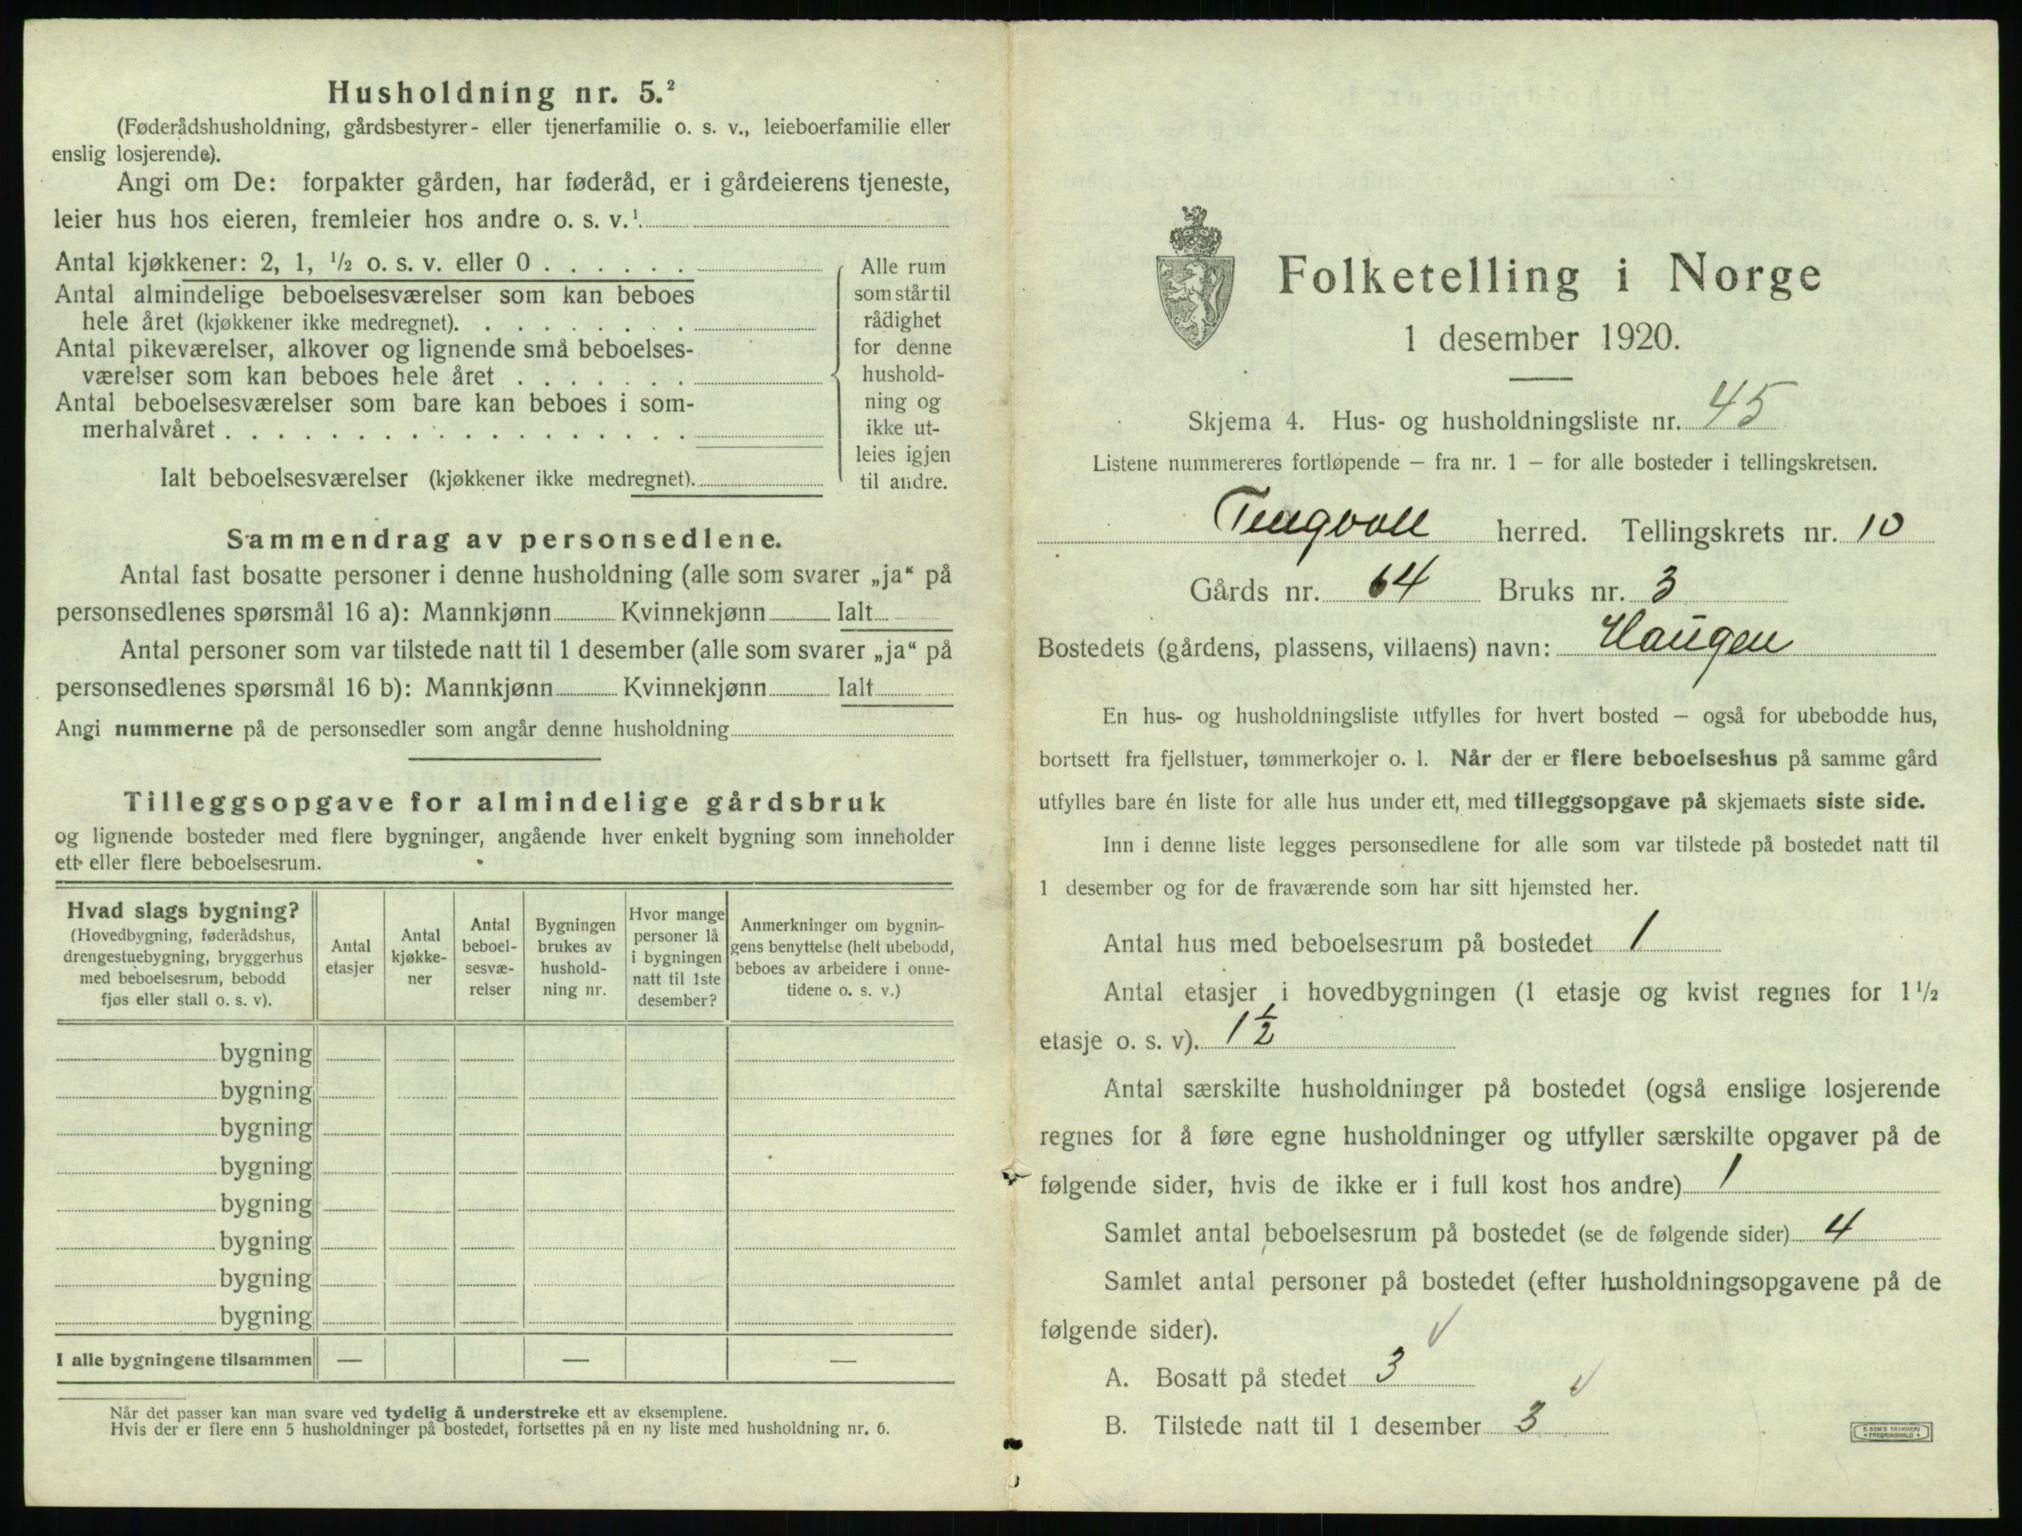 Husholdning nr. 5.²
(Føderådshusholdning, gårdsbestyrer- eller tjenerfamilie o. s. v., leieboerfamilie eller
enslig losjerende).
Angi om De: forpakter gården, har føderåd, er i gårdeierens tjeneste,
leier hus hos eieren, fremleier hos andre o. s. v.¹
Antal kjøkkener: 2, 1, ¹/₂ o. s. v. eller 0 . . . . . .
Antal almindelige beboelsesværelser som kan beboes
hele året (kjøkkener ikke medregnet). . . . . . . . .
Antal pikeværelser, alkover og lignende små beboelses-
værelser som kan beboes hele året . . . . . . .
Antal beboelsesværelser som bare kan beboes i som-
merhalvåret . . . . . . . . . . . . . . . . . .
Ialt beboelsesværelser (kjøkkener ikke medregnet).
Alle rum
som står til
rådighet
for denne
hushold-
ning og
ikke ut-
leies igjen
til andre.
Sammendrag av personsedlene.
Antal fast bosatte personer i denne husholdning (alle som svarer „ja“ på
personsedlenes spørsmål 16 a): Mannkjønn Kvinnekjønn Ialt
Antal personer som var tilstede natt til 1 desember (alle som svarer „ja“ på
personsedlenes spørsmål 16 b): Mannkjønn Kvinnekjønn Ialt
Angi nummerne på de personsedler som angår denne husholdning
Tilleggsopgave for almindelige gårdsbruk
og lignende bosteder med flere bygninger, angående hver enkelt bygning som inneholder
ett eller flere beboelsesrum.
Hvad slags bygning?
(Hovedbygning, føderådshus,
drengestuebygning, bryggerhus
med beboelsesrum, bebodd
fjøs eller stall o. s. v).
Antal
etasjer
Antal
kjøkke-
ner
Antal
beboel-
sesvæ-
relser
Bygningen
brukes av
hushold-
ning nr.
Hvor mange
personer lå
i bygningen
natt til 1ste
desember?
Anmerkninger om bygnin-
gens benyttelse (helt ubebodd,
beboes av arbeidere i onne-
tidene o. s. v.)
bygning
bygning
bygning
bygning
bygning
bygning
bygning
bygning
I alle bygningene tilsammen — — —
Når det passer kan man svare ved tydelig å understreke ett av eksemplene.
Hvis der er flere enn 5 husholdninger på bostedet, fortsettes på en ny liste med husholdning nr. 6.
Folketelling i Norge
1 desember 1920.
Skjema 4. Hus- og husholdningsliste nr. 45
Listene nummereres fortløpende – fra nr. 1 – for alle bosteder i tellingskretsen.
Tingvoll herred. Tellingskrets nr. 10
Gårds nr. 64 Bruks nr. 3
Bostedets (gårdens, plassens, villaens) navn: Haugen
En hus- og husholdningsliste utfylles for hvert bosted – også for ubebodde hus,
bortsett fra fjellstuer, tømmerkojer o. l. Når der er flere beboelseshus på samme gård
utfylles bare én liste for alle hus under ett, med tilleggsopgave på skjemaets siste side.
Inn i denne liste legges personsedlene for alle som var tilstede på bostedet natt til
1 desember og for de fraværende som har sitt hjemsted her.
Antal hus med beboelsesrum på bostedet 1
Antal etasjer i hovedbygningen (1 etasje og kvist regnes for 1¹/₂
etasje o. s. v). 1½
Antal særskilte husholdninger på bostedet (også enslige losjerende
regnes for å føre egne husholdninger og utfyller særskilte opgaver på de
følgende sider, hvis de ikke er i full kost hos andre) 1
Samlet antal beboelsesrum på bostedet (se de følgende sider) 4
Samlet antal personer på bostedet (efter husholdningsopgavene på de
følgende sider).
A. Bosatt på stedet 3
B. Tilstede natt til 1 desember 3